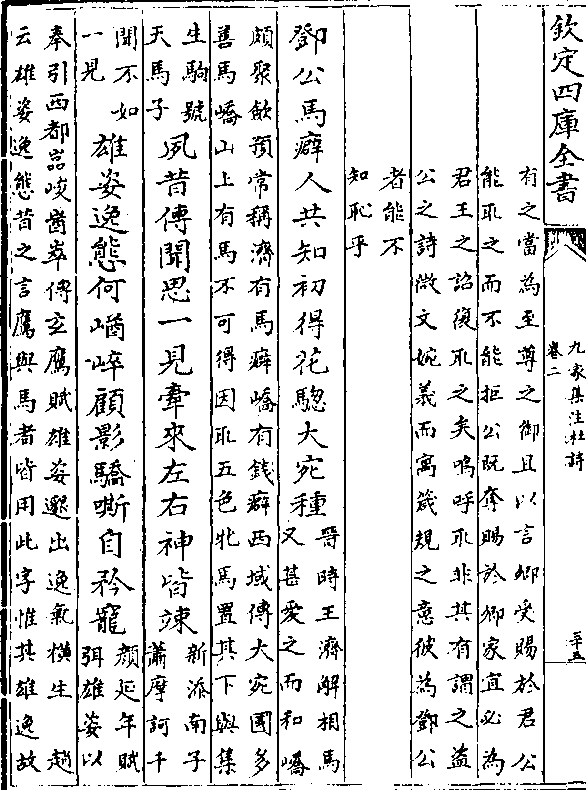 欽定四庫全書
九家集注杜詩
卷二
二十五
有之當為至尊之御且以言鄉受賜於君公
能取之而不能拒公既奪賜於鄉家宜必為
君王之詔復取之矣嗚呼取非其有謂之盗
公之詩微文婉義而寓箴規之意彼為鄧公
者能不
知恥乎
鄧公馬癖人共知初得花驄大宛種晉時王濟解相馬
又甚愛之而和嶠
頗聚歛預常稱濟有馬癖嶠有錢癖西域傳大宛國多
善馬嶠山上有馬不可得因取五色牝馬置其下與集
生駒號
天馬子夙昔傳聞思一見牽來左右神皆竦新添南子
蕭摩訶千
聞不如
一見雄姿逸態何崷崒顧影驕嘶自矜寵顔延年賦
弭雄姿以
奉引西都賦崚崷崒傳玄鷹賦雄姿邈出逸氣橫生趙
云雄姿逸態昔之言鷹與馬者皆用此字惟其雄逸故